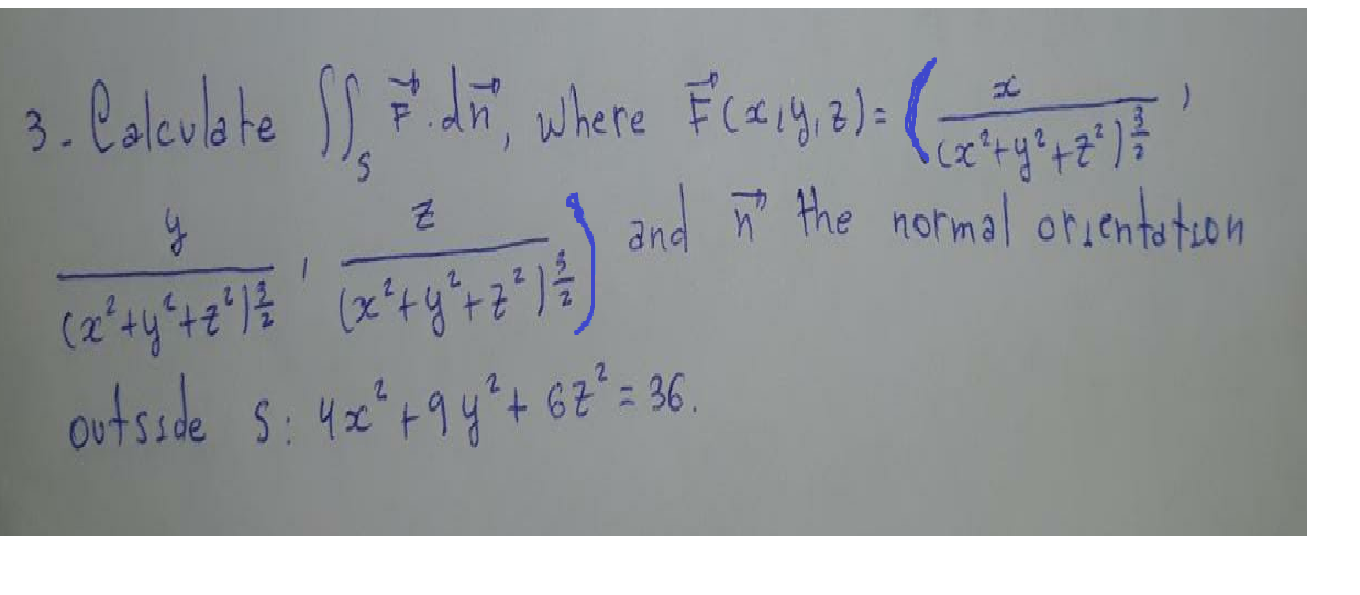 3. Calculate ∬_S F⃗ . dn⃗, where F⃗(x,y,z)= ( x / (x²+y²+z²)^(3/2) ,
y / (x²+y²+z²)^(3/2) , z / (x²+y²+z²)^(3/2) ) and n⃗ the normal orientation
outside S: 4x²+9y²+6z²=36.